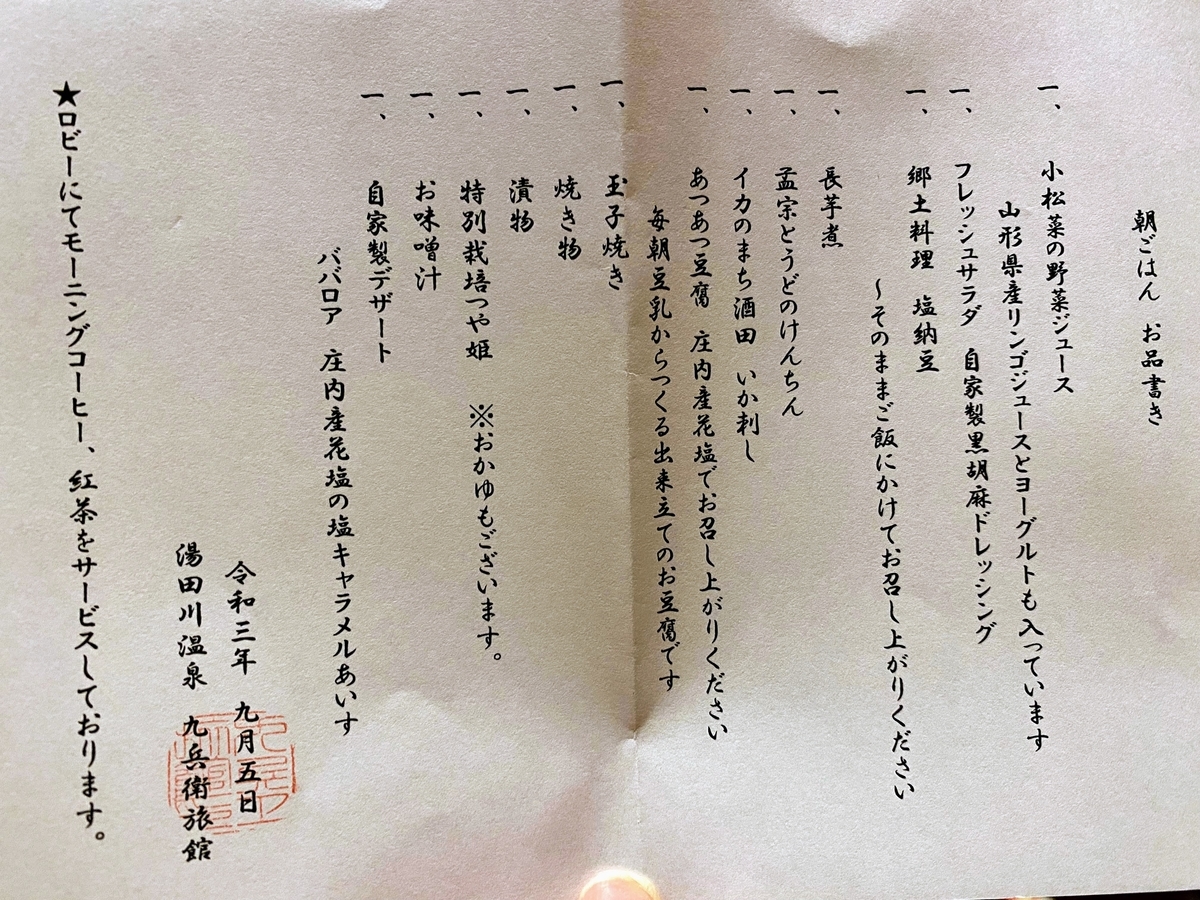 朝ごはん　お品書き
一、小松菜の野菜ジュース
山形県産リンゴジュースとヨーグルトも入っています
一、フレッシュサラダ　自家製黒胡麻ドレッシング
一、郷土料理　塩納豆
～そのままご飯にかけてお召し上がりください
一、長芋煮
一、孟宗とうどのけんちん
一、イカのまち酒田　いか刺し
一、あつあつ豆腐　庄内産花塩でお召し上がりください
毎朝豆乳からつくる出来立てのお豆腐です
一、玉子焼き
一、焼き物
一、漬物
一、特別栽培つや姫　※おかゆもございます。
一、お味噌汁
一、自家製デザート
ババロア　庄内産花塩の塩キャラメルあいす
令和三年　九月五日
湯田川温泉　九兵衛旅館
★ロビーにてモーニングコーヒー、紅茶をサービスしております。